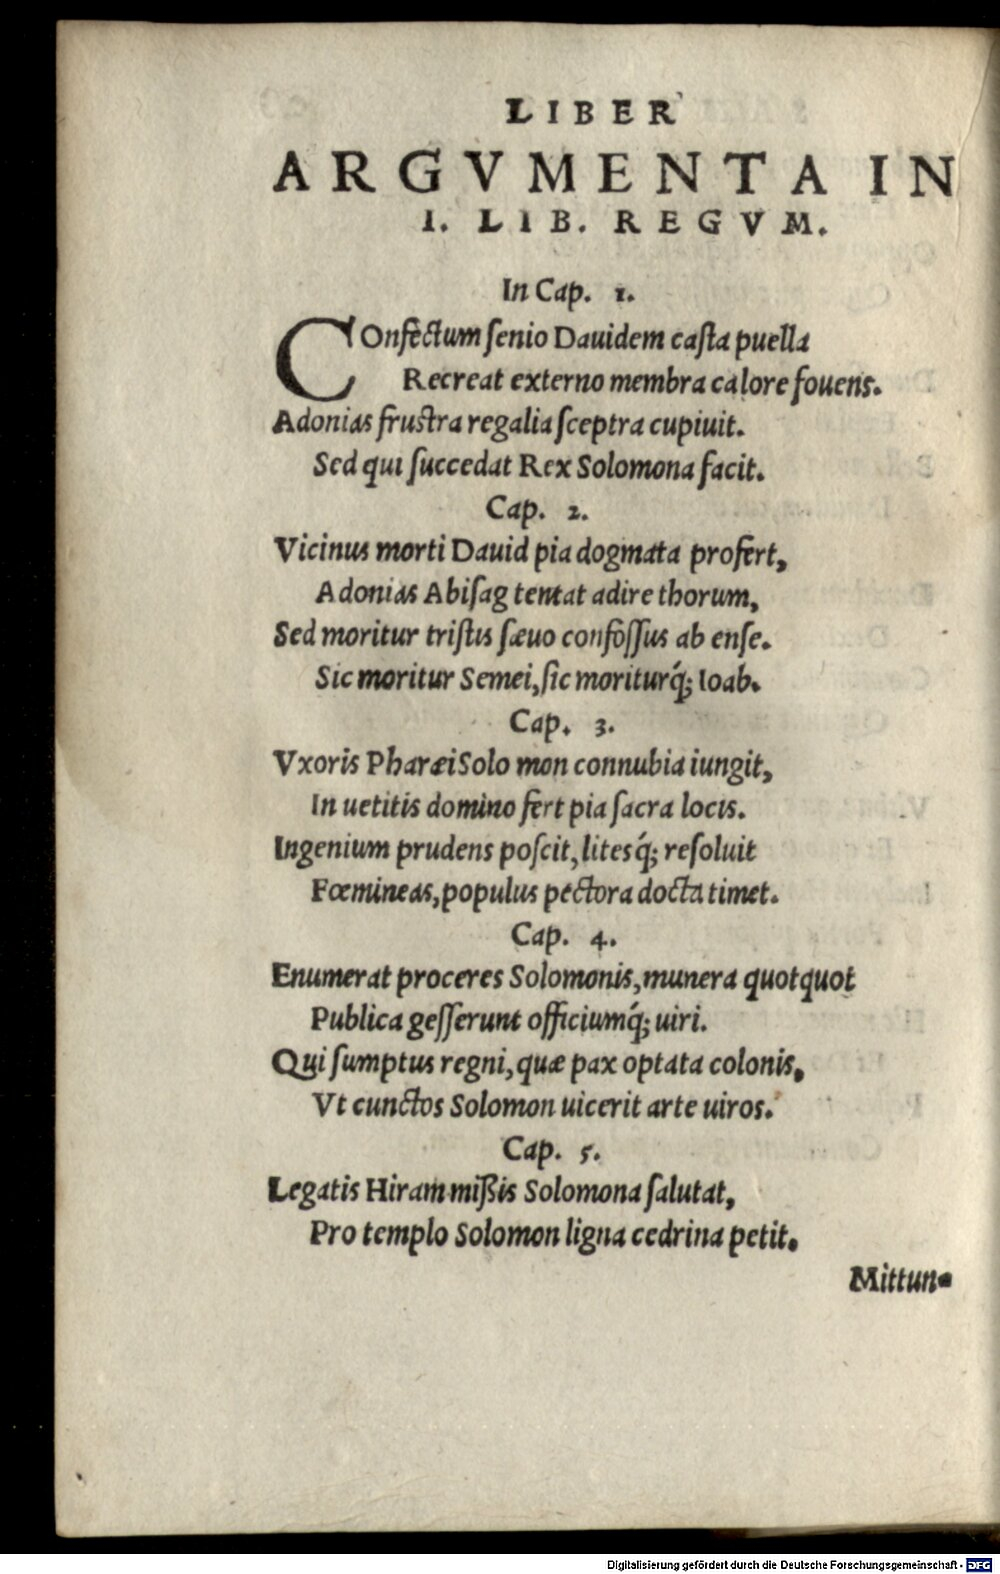 LIBER
ARGVMENTA IN
I. LIB. REGVM.
In Cap. 1.
COnfectum ſenio Dauidem caſta puella
Recreat externo membra calore fouens.
Adonias fruſtra regalia ſceptra cupiuit.
Sed qui ſuccedat Rex Solomona facit.
Cap. 2.
Vicinus morti Dauid pia dogmata profert,
Adonias Abiſag tentat adire thorum,
Sed moritur triſtis ſæuo confoſſus ab enſe.
Sic moritur Semei, ſic moriturq́; Ioab.
Cap. 3.
Vxoris Pharæi Solo mon connubia iungit,
In uetitis domino fert pia ſacra locis.
Ingenium prudens poſcit, litesq́; reſoluit
Fœmineas, populus pectora docta timet.
Cap. 4.
Enumerat proceres Solomonis, munera quotquot
Publica geſſerunt officiumq́; uiri.
Qui ſumptus regni, quæ pax optata colonis,
Vt cunctos Solomon uicerit arte uiros.
Cap. 5.
Legatis Hiram mißis Solomona ſalutat,
Pro templo Solomon ligna cedrina petit.
Mittun-
Digitalisierung gefördert durch die Deutsche Forschungsgemeinschaft - DFG